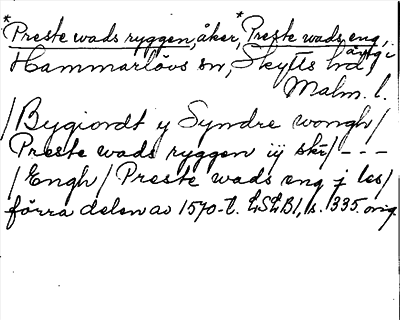 *Preste wads ryggen, åker, *Preste wads eng, äng i
Hammarlövs sn, Skytts hd,
Malm. l.
/Bygiordt y Syndre wongh/
Preste wads ryggen iij skr/ - - -
/Engh/ Preste wads eng j les/
förra delen av 1570-t. LSLB1, s. 335. orig.